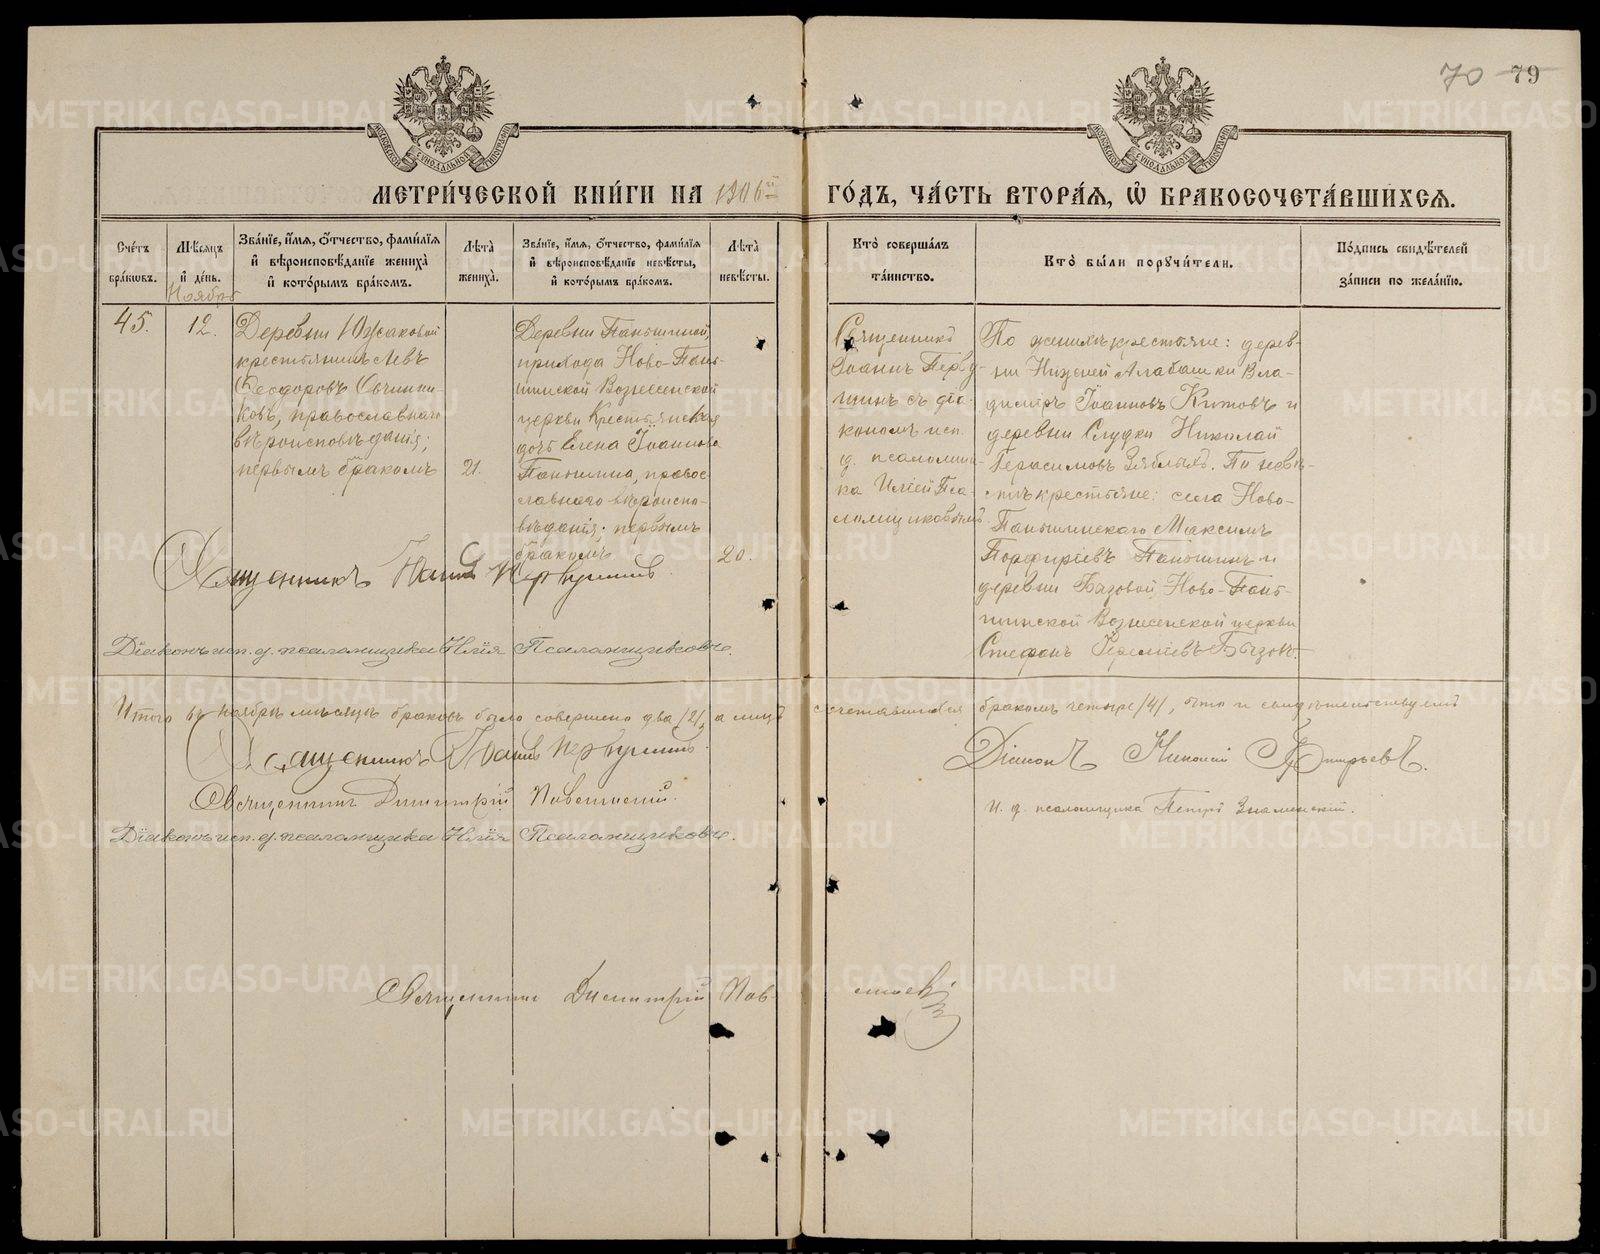 70 79
МЕТРИ́ЧЕСКОЙ КНИ́ГИ НА 1906й ГО́ДЪ, ЧА́СТЬ ВТОРА́Я, Ѽ БРАКОСОЧЕТА́ВШИХСЯ.
МОСКОВСКОЙ СѴНОДАЛЬНОЙ ТИПОГРАФІИ
МОСКОВСКОЙ СѴНОДАЛЬНОЙ ТИПОГРАФІИ
Сче́тъ
бра́кѡвъ.
Мѣ́сяцъ
и҆ де́нь.
Ноябрь
Зва́нїе, и҆́мя, ѻ҆́тчество, фами́лїя
и҆ вѣроисповѣ́данїе жениха̀
и҆ кото́рымъ бра́комъ.
Лѣ́та̀
жениха̀.
Зва́нїе, и҆́мя, ѻ҆́тчество, фами́лїя
и҆ вѣроисповѣ́данїе невѣ́сты,
и҆ кото́рымъ бра́комъ.
Лѣ́та̀
невѣ́сты.
Кто̀ соверша́лъ
та́инство.
Кто̀ бы́ли порꙋчи́тели.
По́дпись свидѣ́телей
за́писи по жела́нїю.
45.
12.
Деревни Южаковой
крестьянинъ Левъ
Ѳеодоровъ Овчинни-
ковъ, православнаго
вѣроисповѣданія;
первымъ бракомъ
21.
Деревни Паньшиной,
прихода Ново-Пань-
шинской Вознесенской
церкви Крестьянская
дочь Елена Іоаннова
Паньшина, правос-
лавнаго вѣроиспо-
вѣданія; первымъ
бракомъ
20.
Священникъ
Іоаннъ Перву-
шинъ съ діа-
кономъ исп.
д. псаломщи-
ка Иліей Пса-
ломщиковымъ
По женихѣ крестьяне: дерев-
ни Нижней Алабашки Вла-
диміръ Іоанновъ Китовъ и
деревни Слудки Николай
Герасимовъ Зяблыхъ. По невѣ-
стѣ крестьяне: села Ново-
Паньшинскаго Максимъ
Порфирьевъ Паньшинъ и
деревни Бызовой, Ново-Пань-
шинской Вознесенской церкви
Стефанъ Бызовъ.
Священникъ Іоаннъ Первушинъ
Діаконъ исп. д. псаломщика Илія Псаломщиковъ.
Итого въ ноябрѣ мѣсяцѣ браковъ было совершено два /2/, а лицъ сочетавшихся бракомъ четыре /4/, что и свидѣтельствуемъ
Священникъ Іоаннъ Первушинъ.
Діаконъ Николай
Священникъ Димитрій
И. д. псаломщика Петръ Знаменскій.
Діаконъ исп. д. псаломщика Илія Псаломщиковъ.
Священникъ Димитрій
METRIKI.GASO-URAL.RU